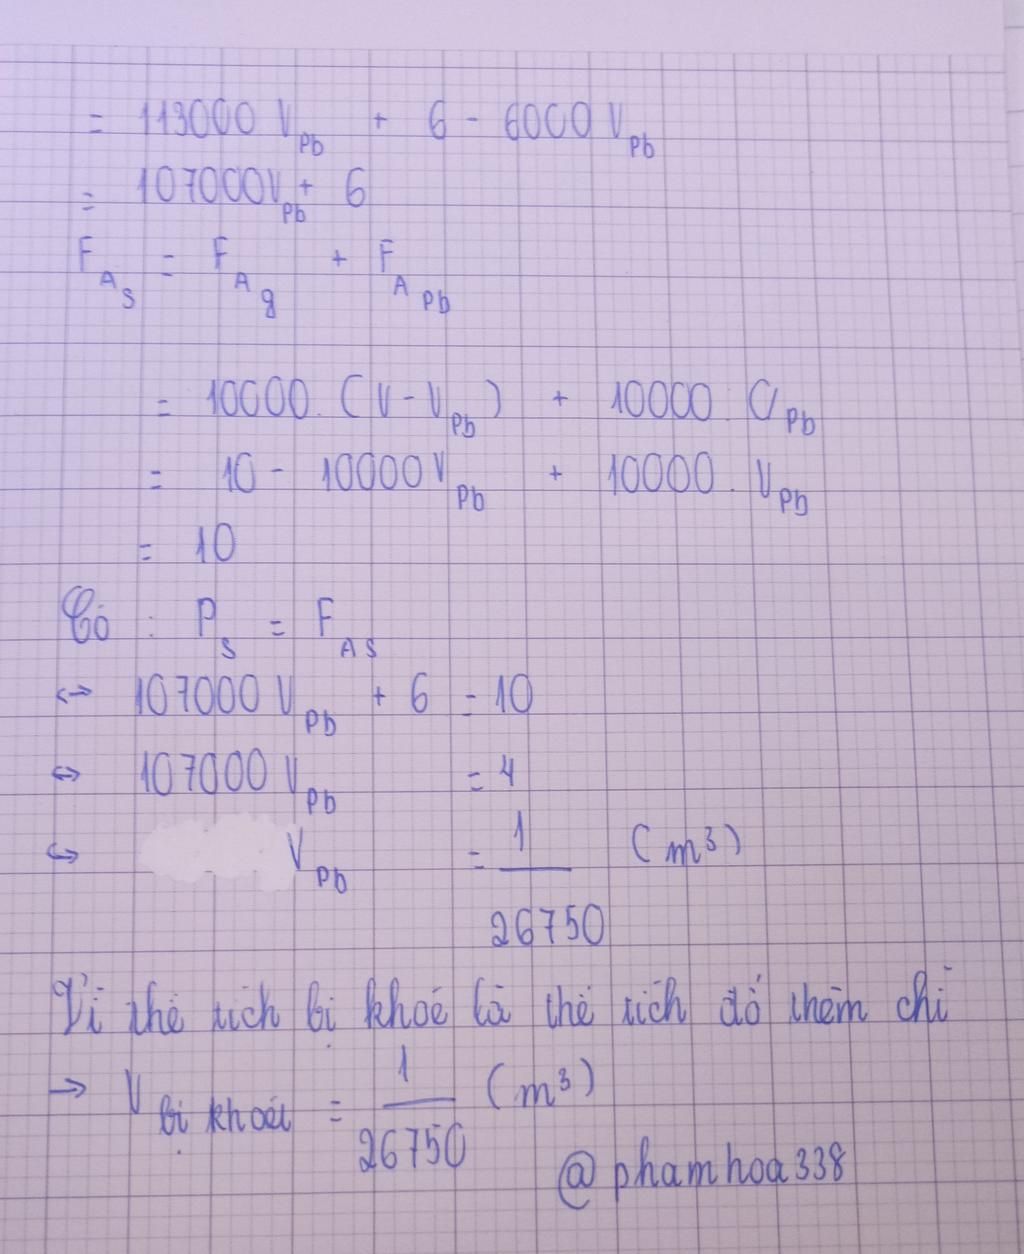 = 113000 V_Pb + 6 - 6000 V_Pb
= 107000V_Pb + 6
F_As = F_Ag + F_APb
= 10000. (V - V_Pb) + 10000. V_Pb
= 10 - 10000V_Pb + 10000. V_Pb
= 10
Có : P_s = F_As
<-> 107000 V_Pb + 6 = 10
<=> 107000 V_Pb = 4
<=> V_Pb = 1/26750 (m³)
Vì thể tích bị khoét là thể tích đổ thêm chì
-> V bị khoét = 1/26750 (m³)
@phamhoa338